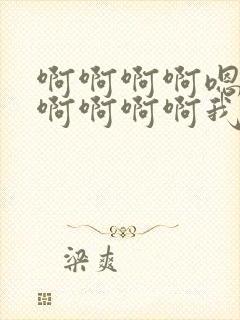 啊啊啊啊嗯
啊啊啊啊我
梁爽